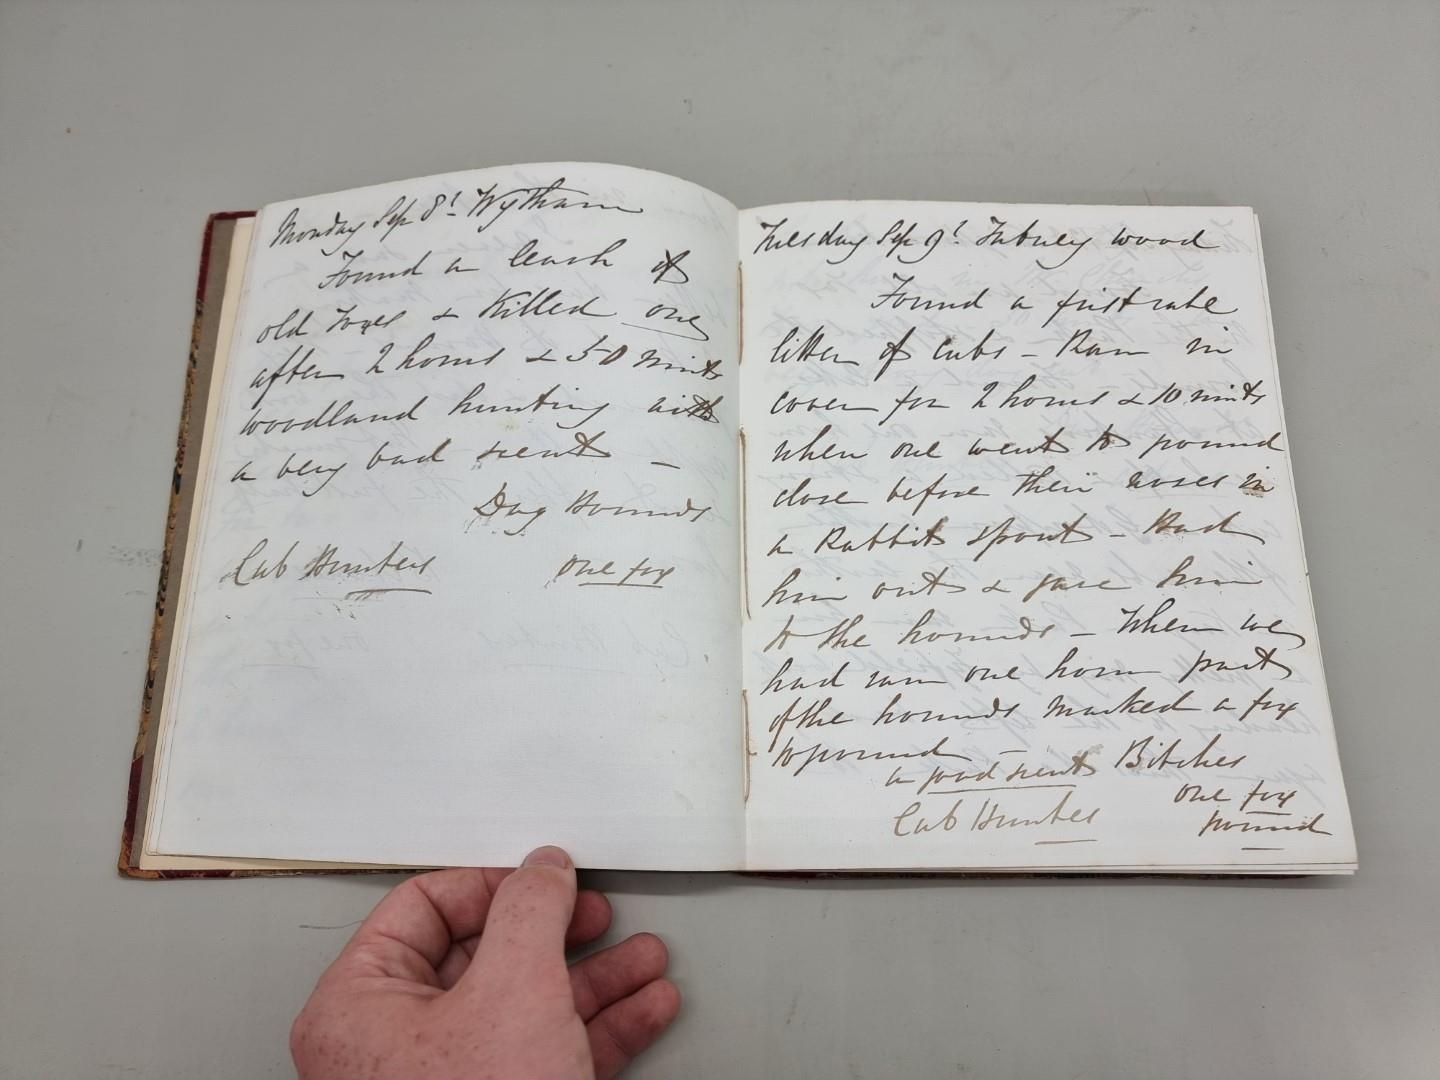 Monday Sep 8t. Wytham
Found a leash of
old Foxes & Killed one
after 2 hours & 50 minits
woodland hunting with
a very bad scent –
Dog Hounds
Cub Hunters one fox
Tuesday Sep 9t. Tubney wood
Found a first rate
litter of cubs – Ran in
cover for 2 hours & 10 minits
when one went to pound
close before their noses in
a Rabbit spout – Had
him out & gave him
to the hounds – When we
had run one hour part
of the hounds marked a fox
to pound –
a good scent Bitches
one fox
Cub Hunters pound